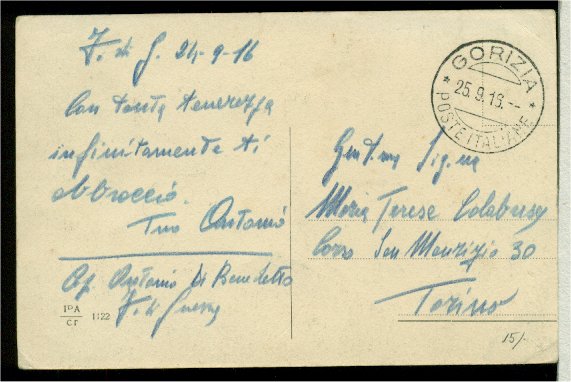 Z. di G. 24-9-16
Con tanta tenerezza
infinitamente ti
abbraccio.
Tuo Antonio
Antonio Di Benedetto
Z. di Guerra
IºA
cr 1122
GORIZIA
* 25.9.16.-- *
POSTE ITALIANE
Gent.ma Sig.na
Maria Terese
Corso San Maurizio 30
Torino
15/-